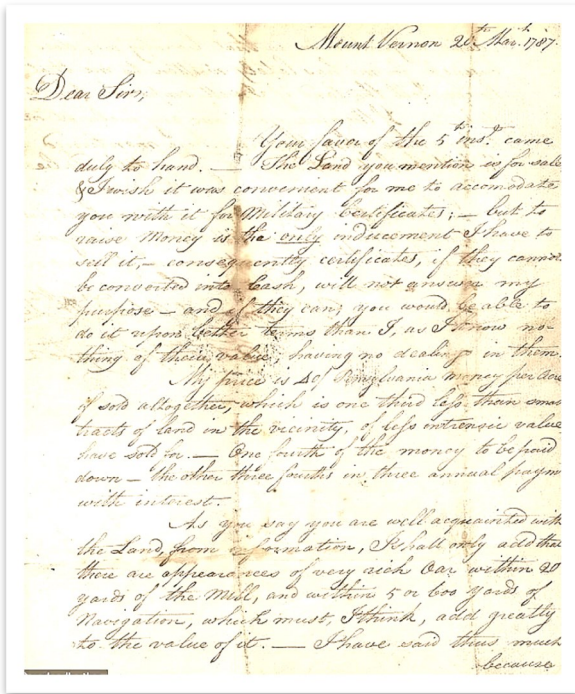 Mount Vernon 20th Mar. 1787.
Dear Sir,
Your favor of the 5th inst. came
duly to hand. — The Land you mention is for sale
& I wish it was convenient for me to accomodate
you with it for Military Certificates; — but to
raise Money is the only inducement I have to
sell it, — consequently certificates, if they cannot
be converted into Cash, will not answer my
purpose — and if they can, you would be able to
do it upon better terms than I, as I know no-
thing of their value, having no dealings in them.
My price is 40/ Pensylvania money per Acre
if sold altogether, which is one third less than small
tracts of land in the vicinity, of less intrinsic value
have sold for. — One fourth of the money to be paid
down — the other three fourths in three annual paym
with interest.
As you say you are well acquainted with
the Land, from information, I shall only add that
there are appearances of very rich Oar within 20
yards of the Mill, and within 5 or 600 yards of
Navigation, which must, I think, add greatly
to the value of it. — I have said thus much
because